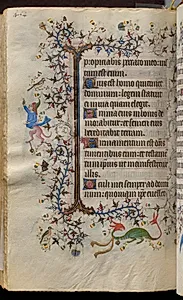 propiciaberis peccato meo mul
tum est enim.
Quis est homo qui timet
dominum legem statuit
ei in via quam elegit.
Anima eius in bonis de
morabitur et semen eius
hereditabit terram.
Firmamentum est dns
timentibus eum et testam
tum ipsius ut manifestet
illis.
Oculi mei semper ad domi
num quoniam ipse evellet